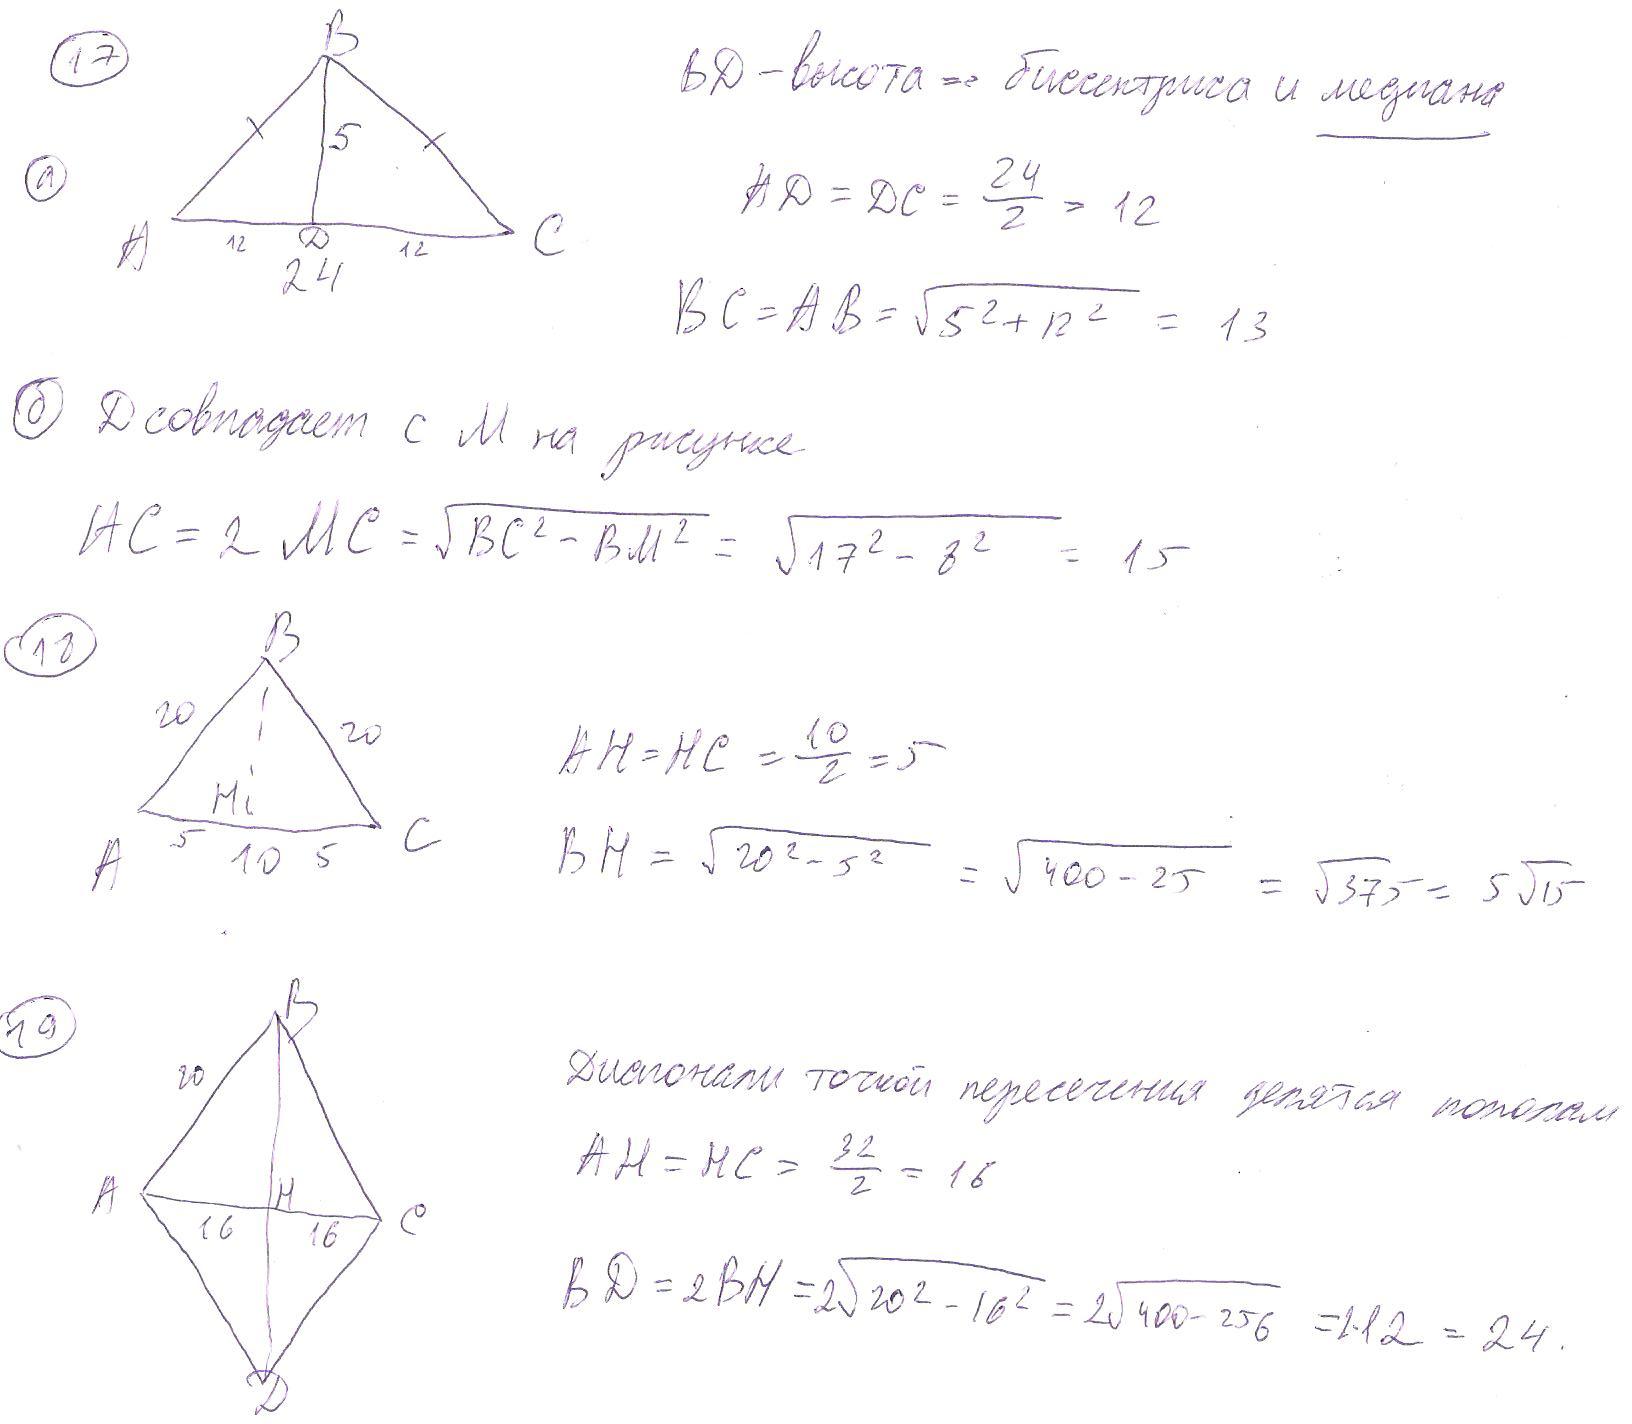 17
B
BD - высота => биссектриса и медиана
а
5
A
12
D
12
C
24
AD = DC = 24/2 = 12
BC = AB = √(5² + 12²) = 13
б D совпадает с M на рисунке
AC = 2 MC = √(BC² - BM²) = √(17² - 8²) = 15
18
B
20
20
H
A
5
10
5
C
AH = HC = 10/2 = 5
BH = √(20² - 5²) = √(400 - 25) = √375 = 5√15
19
B
20
A
H
16
16
C
D
Диагонали точкой пересечения делятся пополам
AH = HC = 32/2 = 16
BD = 2BH = 2√(20² - 16²) = 2√(400 - 256) = 2·12 = 24.